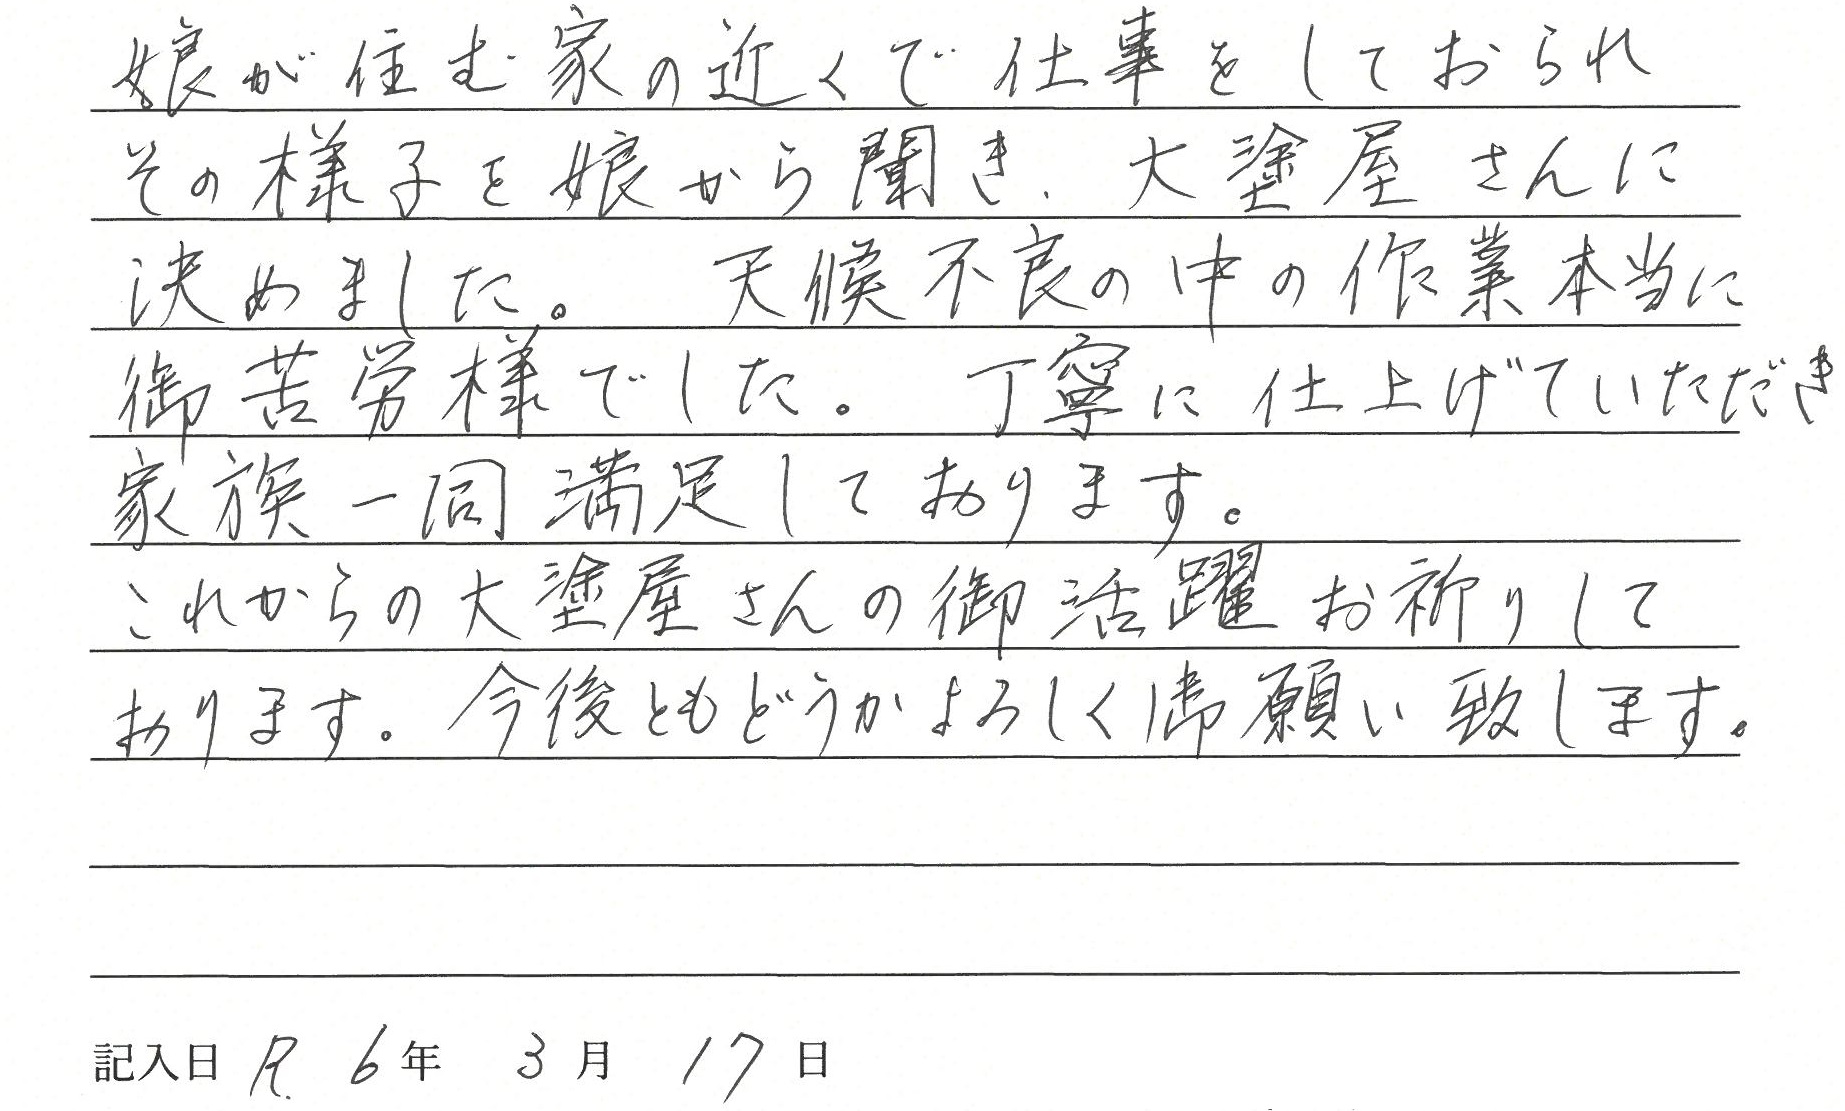 娘が住む家の近くで仕事をしておられ
その様子を娘から聞き、大塗屋さんに
決めました。 天候不良の中の作業本当に
御苦労様でした。 丁寧に仕上げていただき
家族一同満足しております。
これからの大塗屋さんの御活躍お祈りして
おります。今後ともどうかよろしく御願い致します。
記入日 R. 6年 3月 17日